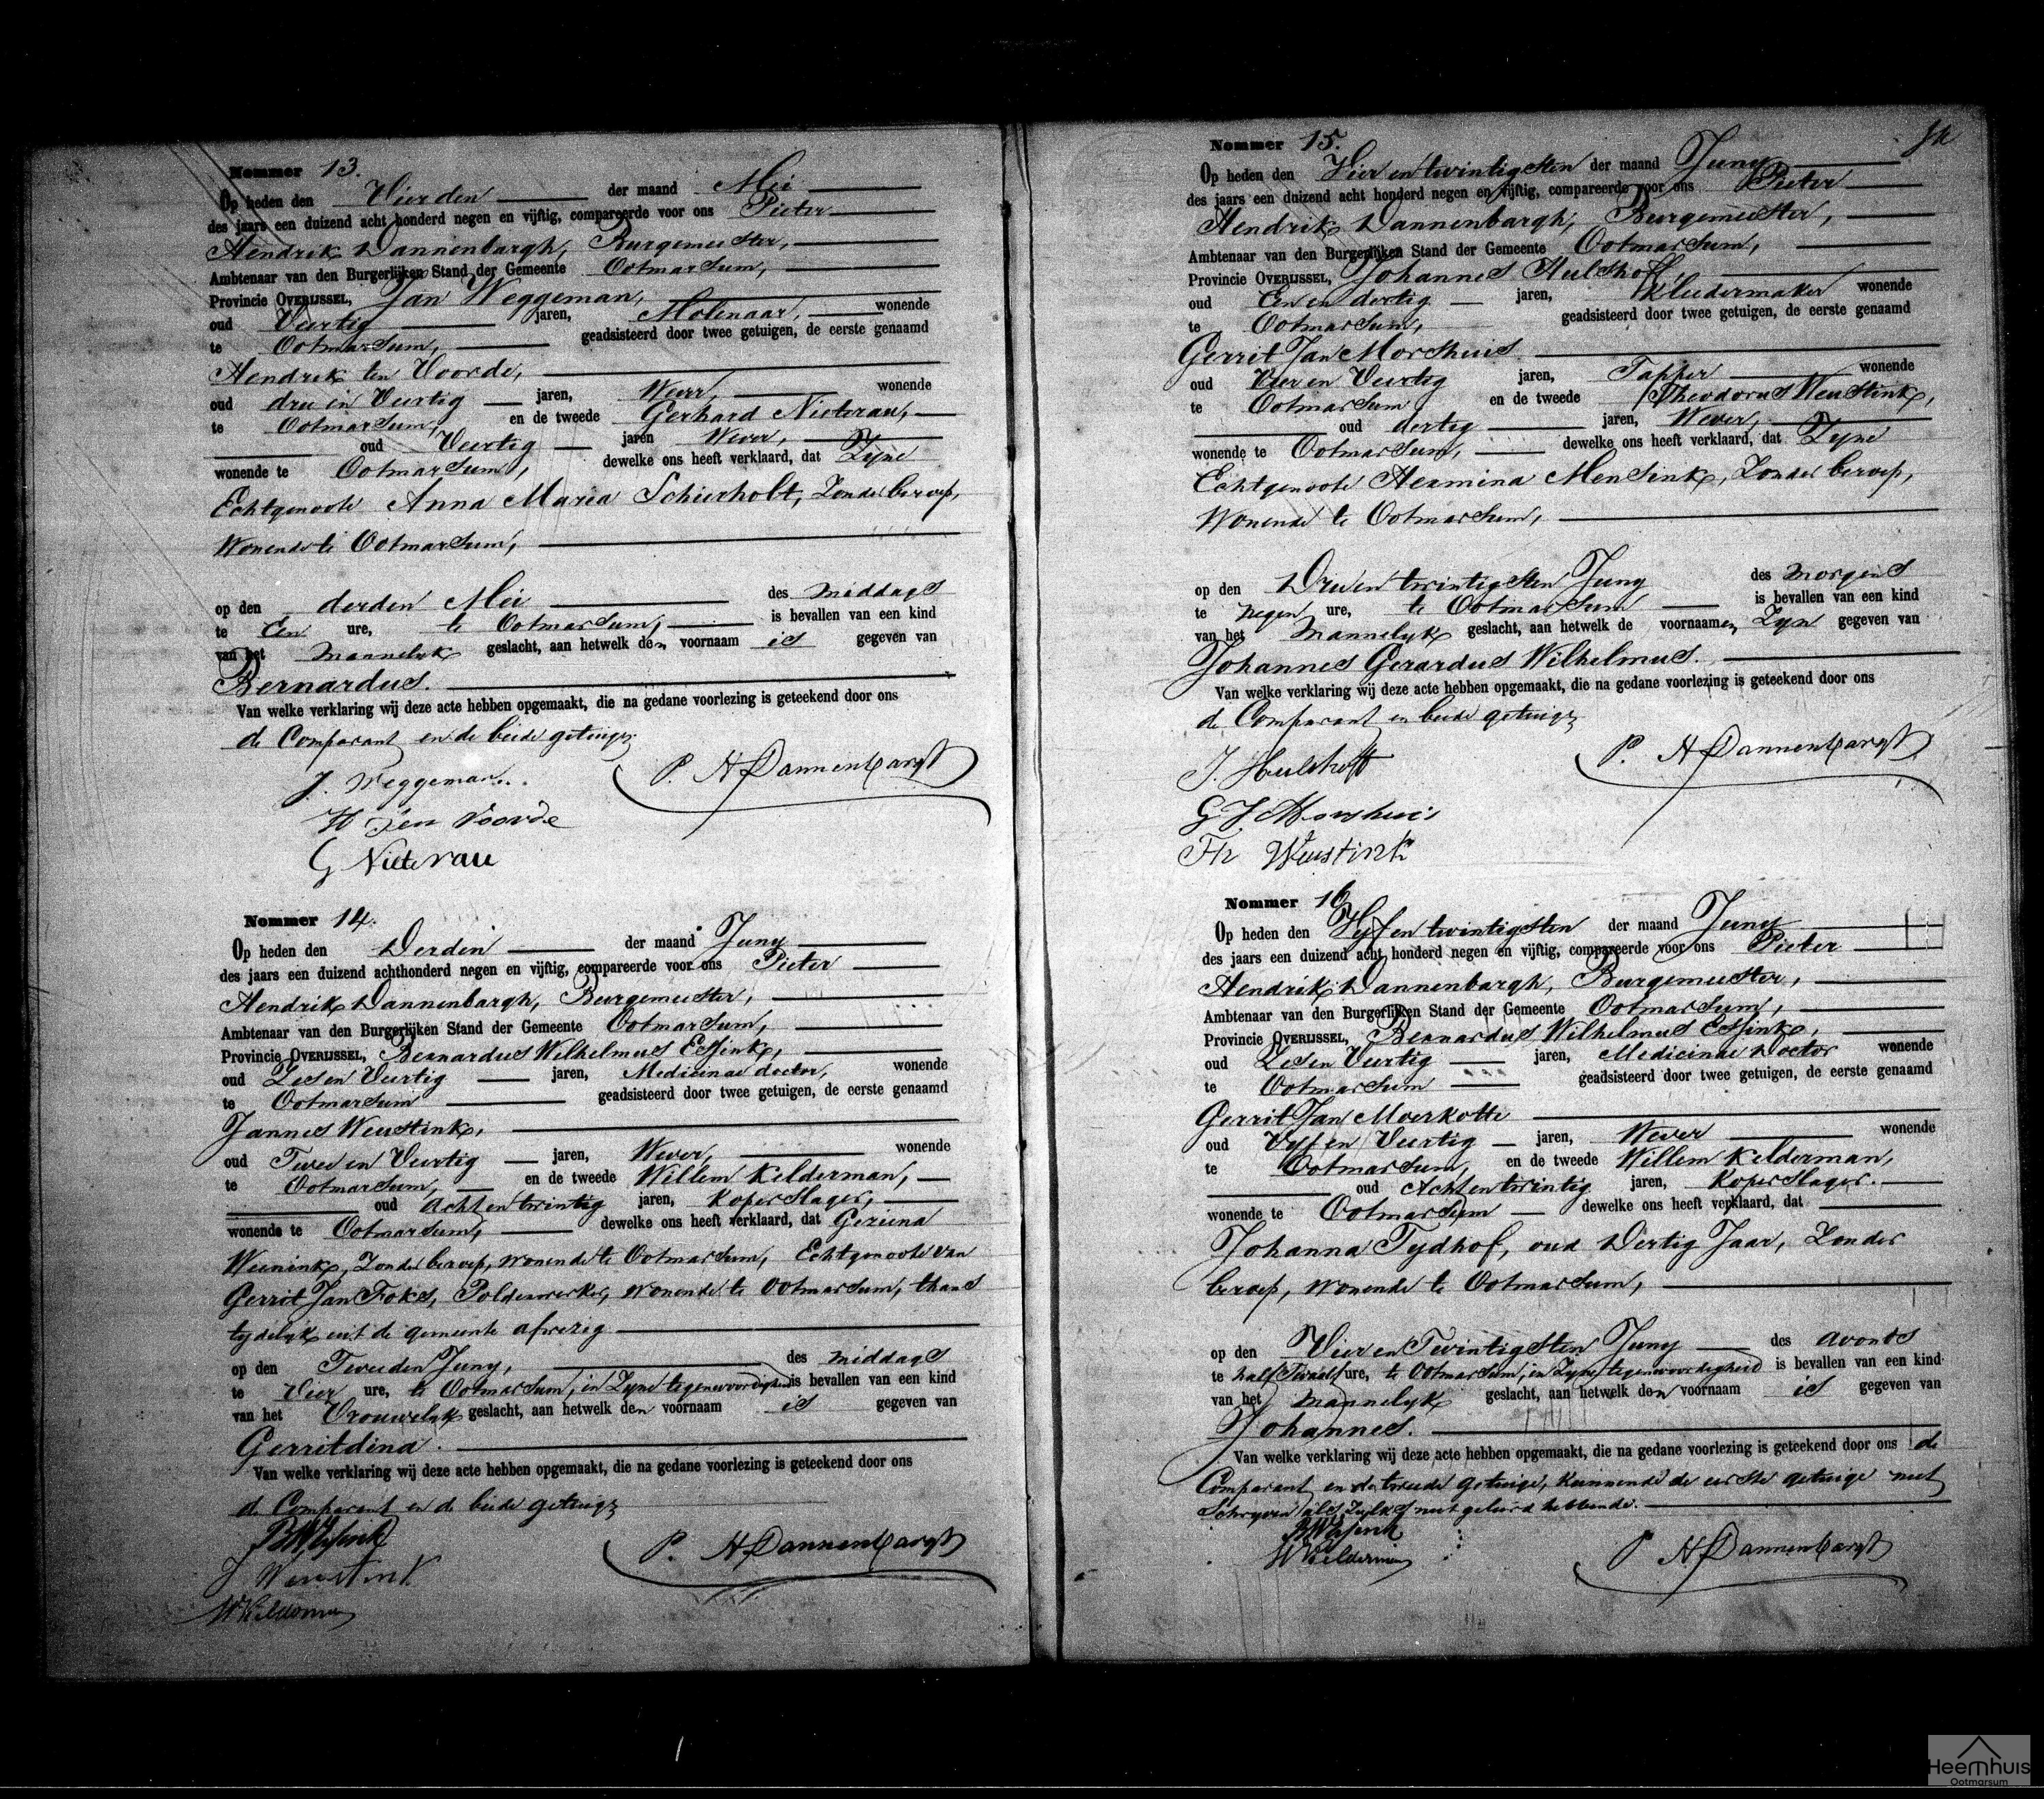 Nommer 13.
Op heden den Vierden der maand Mei
des jaars een duizend acht honderd negen en vijftig, compareerde voor ons Pieter
Hendrik Dannenbargh, Burgemeester,
Ambtenaar van den Burgerlijken Stand der Gemeente Ootmarsum,
Provincie OVERIJSSEL, Jan Weggeman,
oud Veertig jaren, Molenaar, wonende
te Ootmarsum, geadsisteerd door twee getuigen, de eerste genaamd
Hendrik ten Voorde,
oud drie en Veertig jaren, Wever, wonende
te Ootmarsum, en de tweede Gerhard Nieterau,
oud Veertig jaren Wever,
wonende te Ootmarsum, dewelke ons heeft verklaard, dat Zyne
Echtgenoote Anna Maria Schierholt, Zonder beroep,
Wonende te Ootmarsum,
op den derden Mei des middags
te Een ure, te Ootmarsum, is bevallen van een kind
van het Mannelyk geslacht, aan hetwelk den voornaam is gegeven van
Bernardus.
Van welke verklaring wij deze acte hebben opgemaakt, die na gedane voorlezing is geteekend door ons
de Comparant en de beide getuigen
J. Weggeman. P. H Dannenbargh
H ten Voorde
G Nieterau
Nommer 14.
Op heden den Derden der maand Juny
des jaars een duizend achthonderd negen en vijftig, compareerde voor ons Pieter
Hendrik Dannenbargh, Burgemeester,
Ambtenaar van den Burgerlijken Stand der Gemeente Ootmarsum,
Provincie OVERIJSSEL, Bernardus Wilhelmus Essink,
oud Zes en Veertig jaren, Medicinae doctor, wonende
te Ootmarsum geadsisteerd door twee getuigen, de eerste genaamd
Jannes Weustink,
oud Twee en Veertig jaren, Wever, wonende
te Ootmarsum, en de tweede Willem Kelderman,
oud Acht en twintig jaren, Koperslager,
wonende te Ootmarsum, dewelke ons heeft verklaard, dat Geziena
Weenink, Zonder beroep, wonende te Ootmarsum, Echtgenoote van
Gerrit Jan Foks, Polderwerker, wonende te Ootmarsum, thans
tydelyk uit de gemeente afwezig
op den Tweeden Juny, des middags
te Vier ure, te Ootmarsum, in Zyne tegenwoordigheid is bevallen van een kind
van het Vrouwelyk geslacht, aan hetwelk den voornaam is gegeven van
Gerritdina.
Van welke verklaring wij deze acte hebben opgemaakt, die na gedane voorlezing is geteekend door ons
de Comparant en de beide getuigen
BWEssink P. H Dannenbargh
J Weustink
W Kelderman
Nommer 15.
Op heden den Vier en twintigsten der maand Juny
des jaars een duizend acht honderd negen en vijftig, compareerde voor ons Pieter
Hendrik Dannenbargh, Burgemeester,
Ambtenaar van den Burgerlijken Stand der Gemeente Ootmarsum,
Provincie OVERIJSSEL, Johannes Hulshoff,
oud Een en dertig jaren, Kleedermaker wonende
te Ootmarsum, geadsisteerd door twee getuigen, de eerste genaamd
Gerrit Jan Morshuis
oud Vier en Veertig jaren, Tapper wonende
te Ootmarsum, en de tweede Theodorus Weustink,
oud dertig jaren, Wever,
wonende te Ootmarsum, dewelke ons heeft verklaard, dat Zyne
Echtgenoote Hermina Mensink, Zonder beroep,
Wonende te Ootmarsum,
op den Drie en twintigsten Juny des morgens
te negen ure, te Ootmarsum is bevallen van een kind
van het Mannelyk geslacht, aan hetwelk de voornaamen Zyn gegeven van
Johannes Gerardus Wilhelmus.
Van welke verklaring wij deze acte hebben opgemaakt, die na gedane voorlezing is geteekend door ons
de Comparant en beide getuigen
J. Hulshoff P. H Dannenbargh
G J Morshuis
Th Weustink
Nommer 16
Op heden den Vyf en twintigsten der maand Juny
des jaars een duizend acht honderd negen en vijftig, compareerde voor ons Pieter
Hendrik Dannenbargh, Burgemeester,
Ambtenaar van den Burgerlijken Stand der Gemeente Ootmarsum,
Provincie OVERIJSSEL, Bernardus Wilhelmus Essink,
oud Zes en Veertig jaren, Medicinae Doctor wonende
te Ootmarsum geadsisteerd door twee getuigen, de eerste genaamd
Gerrit Jan Moerkotte
oud Vyf en Veertig jaren, Wever wonende
te Ootmarsum, en de tweede Willem Kelderman,
oud Acht en twintig jaren, Koperslager.
wonende te Ootmarsum dewelke ons heeft verklaard, dat
Johanna Tydhof, oud Dertig Jaar, Zonder
beroep, wonende te Ootmarsum,
op den Vier en Twintigsten Juny des avonds
te half Twaalf ure, te Ootmarsum, in Zyne tegenwoordigheid is bevallen van een kind
van het Mannelyk geslacht, aan hetwelk den voornaam is gegeven van
Johannes.
Van welke verklaring wij deze acte hebben opgemaakt, die na gedane voorlezing is geteekend door ons de
Comparant en de tweede getuige, kunnende de eerste getuige niet
Schryven als Zulks niet geleerd hebbende.
BWEssink P H Dannenbargh
W Kelderman
Heemhuis
Ootmarsum